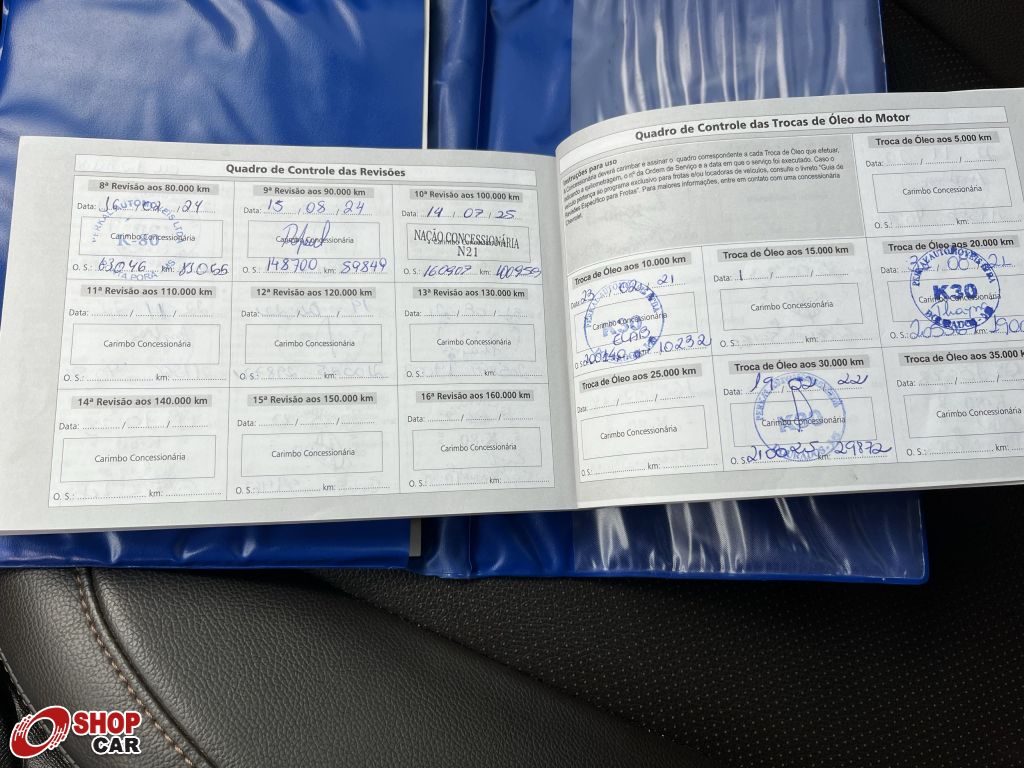 Quadro de Controle das Revisões
8ª Revisão aos 80.000 km
Data: 16 / 02 / 24
K-80
Carimbo Concessionária
O. S.: 63046 km: 83055
9ª Revisão aos 90.000 km
Data: 15 / 08 / 24
Carimbo Concessionária
O. S.: 148700 km: 89849
10ª Revisão aos 100.000 km
Data: 19 / 07 / 25
Carimbo Concessionária
NAÇÃO CONCESSIONÁRIA
N21
O. S.: km:
11ª Revisão aos 110.000 km
Data: / /
Carimbo Concessionária
O. S.: km:
12ª Revisão aos 120.000 km
Data: / /
Carimbo Concessionária
O. S.: km:
13ª Revisão aos 130.000 km
Data: / /
Carimbo Concessionária
O. S.: km:
14ª Revisão aos 140.000 km
Data: / /
Carimbo Concessionária
O. S.: km:
15ª Revisão aos 150.000 km
Data: / /
Carimbo Concessionária
O. S.: km:
16ª Revisão aos 160.000 km
Data: / /
Carimbo Concessionária
O. S.: km:
Quadro de Controle das Trocas de Óleo do Motor
Instruções para uso
A Concessionária deverá carimbar e assinar o quadro correspondente a cada Troca de Óleo que efetuar,
indicando a quilometragem, o nº da Ordem de Serviço e a data em que o serviço foi executado. Caso o
veículo pertença ao programa exclusivo para frotas e/ou locadoras de veículos, consulte o livreto "Guia de
Revisões Específico para Frotas". Para maiores informações, entre em contato com uma concessionária
Chevrolet.
Troca de Óleo aos 5.000 km
Data: / /
Carimbo Concessionária
O. S.: km:
Troca de Óleo aos 10.000 km
Data: 23 / / 21
K30
Carimbo Concessionária
O. S.: km: 10232
Troca de Óleo aos 15.000 km
Data: / /
Carimbo Concessionária
O. S.: km:
Troca de Óleo aos 20.000 km
Data: / / 21
K30
Carimbo Concessionária
O. S.:
Troca de Óleo aos 25.000 km
Data: / /
Carimbo Concessionária
O. S.: km:
Troca de Óleo aos 30.000 km
Data: 19 / 02 / 22
K30
Carimbo Concessionária
O. S.: km: 29872
Troca de Óleo aos 35.000 km
Data: / /
Carimbo Concessionária
O. S.: km:
SHOP
CAR